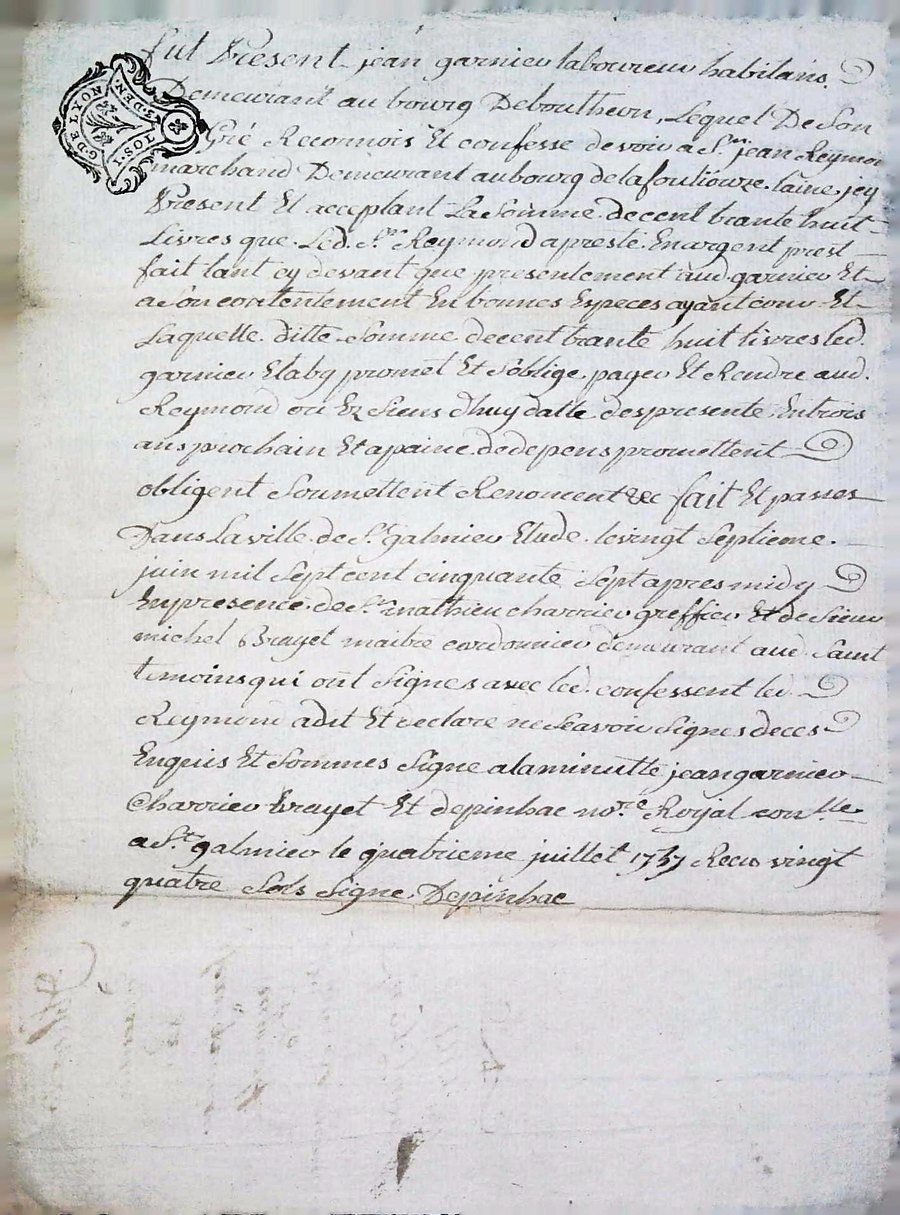 G. DE LYON
3. DEN.
1 SOL
fut Present jean garnier laboureur habitans
Demeurant au bourg Deboutheon, Lequel De Son
Gré Reconnois Et confesse devoir a Sr. jean Reymon
marchand Demeurant aubourg delafouliouze. laine. jey
Present Et acceptant La Somme decent trante huit
Livres que Led. Sr. Reymond apresté Enargent prest
fait tant cy devant que presentement aud. garnier Et
a Son contentement En bonnes Especes ayant cour Et
Laquelle ditte Somme decent trante huit livres led.
garnier promet Et S'oblige payer Et Rendre aud.
Reymond ou Ez Siens d'huy datte despresente Entrois
ans prochain Et apaine dedepens promettent
obligent Soumettent Renoncent &c fait Et passes
Dans La ville de St. galmier Etude levingt Septieme
juin mil Sept cent cinquante Sept apres midy
Enpresence de Sr. mathieu charrier greffier Et de Sieur
michel Brayet maitre cordonnier demeurant aud. Saint
temoins qui ont Signes avec led. confessent led.
Reymond adit Et declare ne Scavoir Signes deces
Enquis Et Sommes Signe alaminutte jean garnier
Charrier Brayet Et depinhac nore. Royal conlle
a St. galmier le quatrieme juillet 1757 Recu vingt
quatre Sols Signe. Depinhac